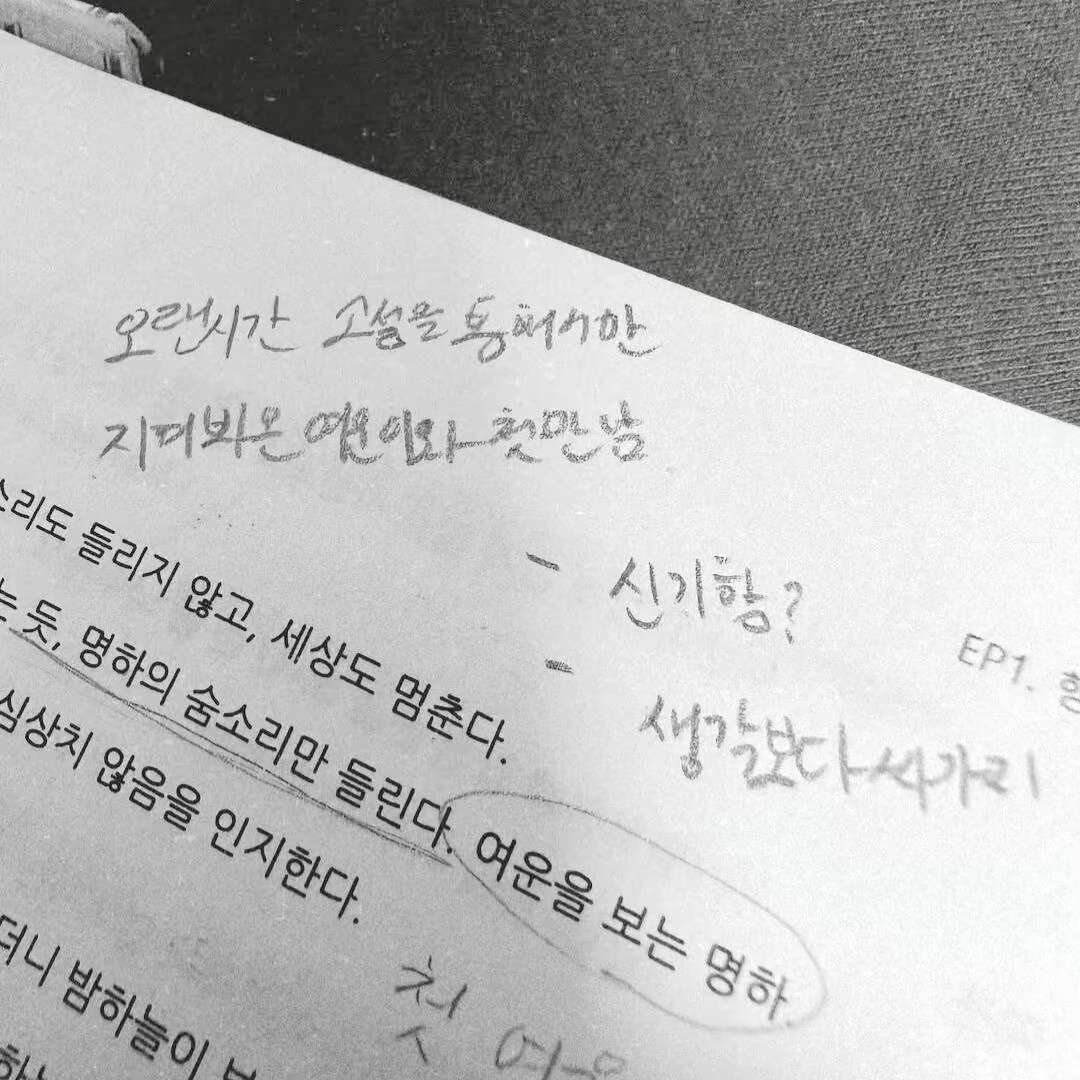 오랜시간 소설을 통해서만
지켜봐온 여운이와 첫만남
소리도 들리지 않고, 세상도 멈춘다.
는 듯, 명하의 숨소리만 들린다. 여운을 보는 명하
심상치 않음을 인지한다.
- 신기함?
- 생각보다 싸가지
EP1.
밤하늘이
첫 여운